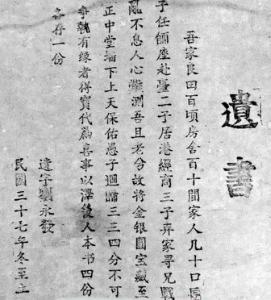 遺書
吾家良田百頃房舍百十間家人几十口長
子任座赴臺二子居港經商三子弃家尋兄戰
亂不息人心測吾且老兮故將金銀國宝藏至
正中堂墙下上天保佑愚子迴贈三三四分不可
爭執有緣者得寶代為喜事以澤後人本書四份
各存一份
遺字永發
民國三十七年冬至立